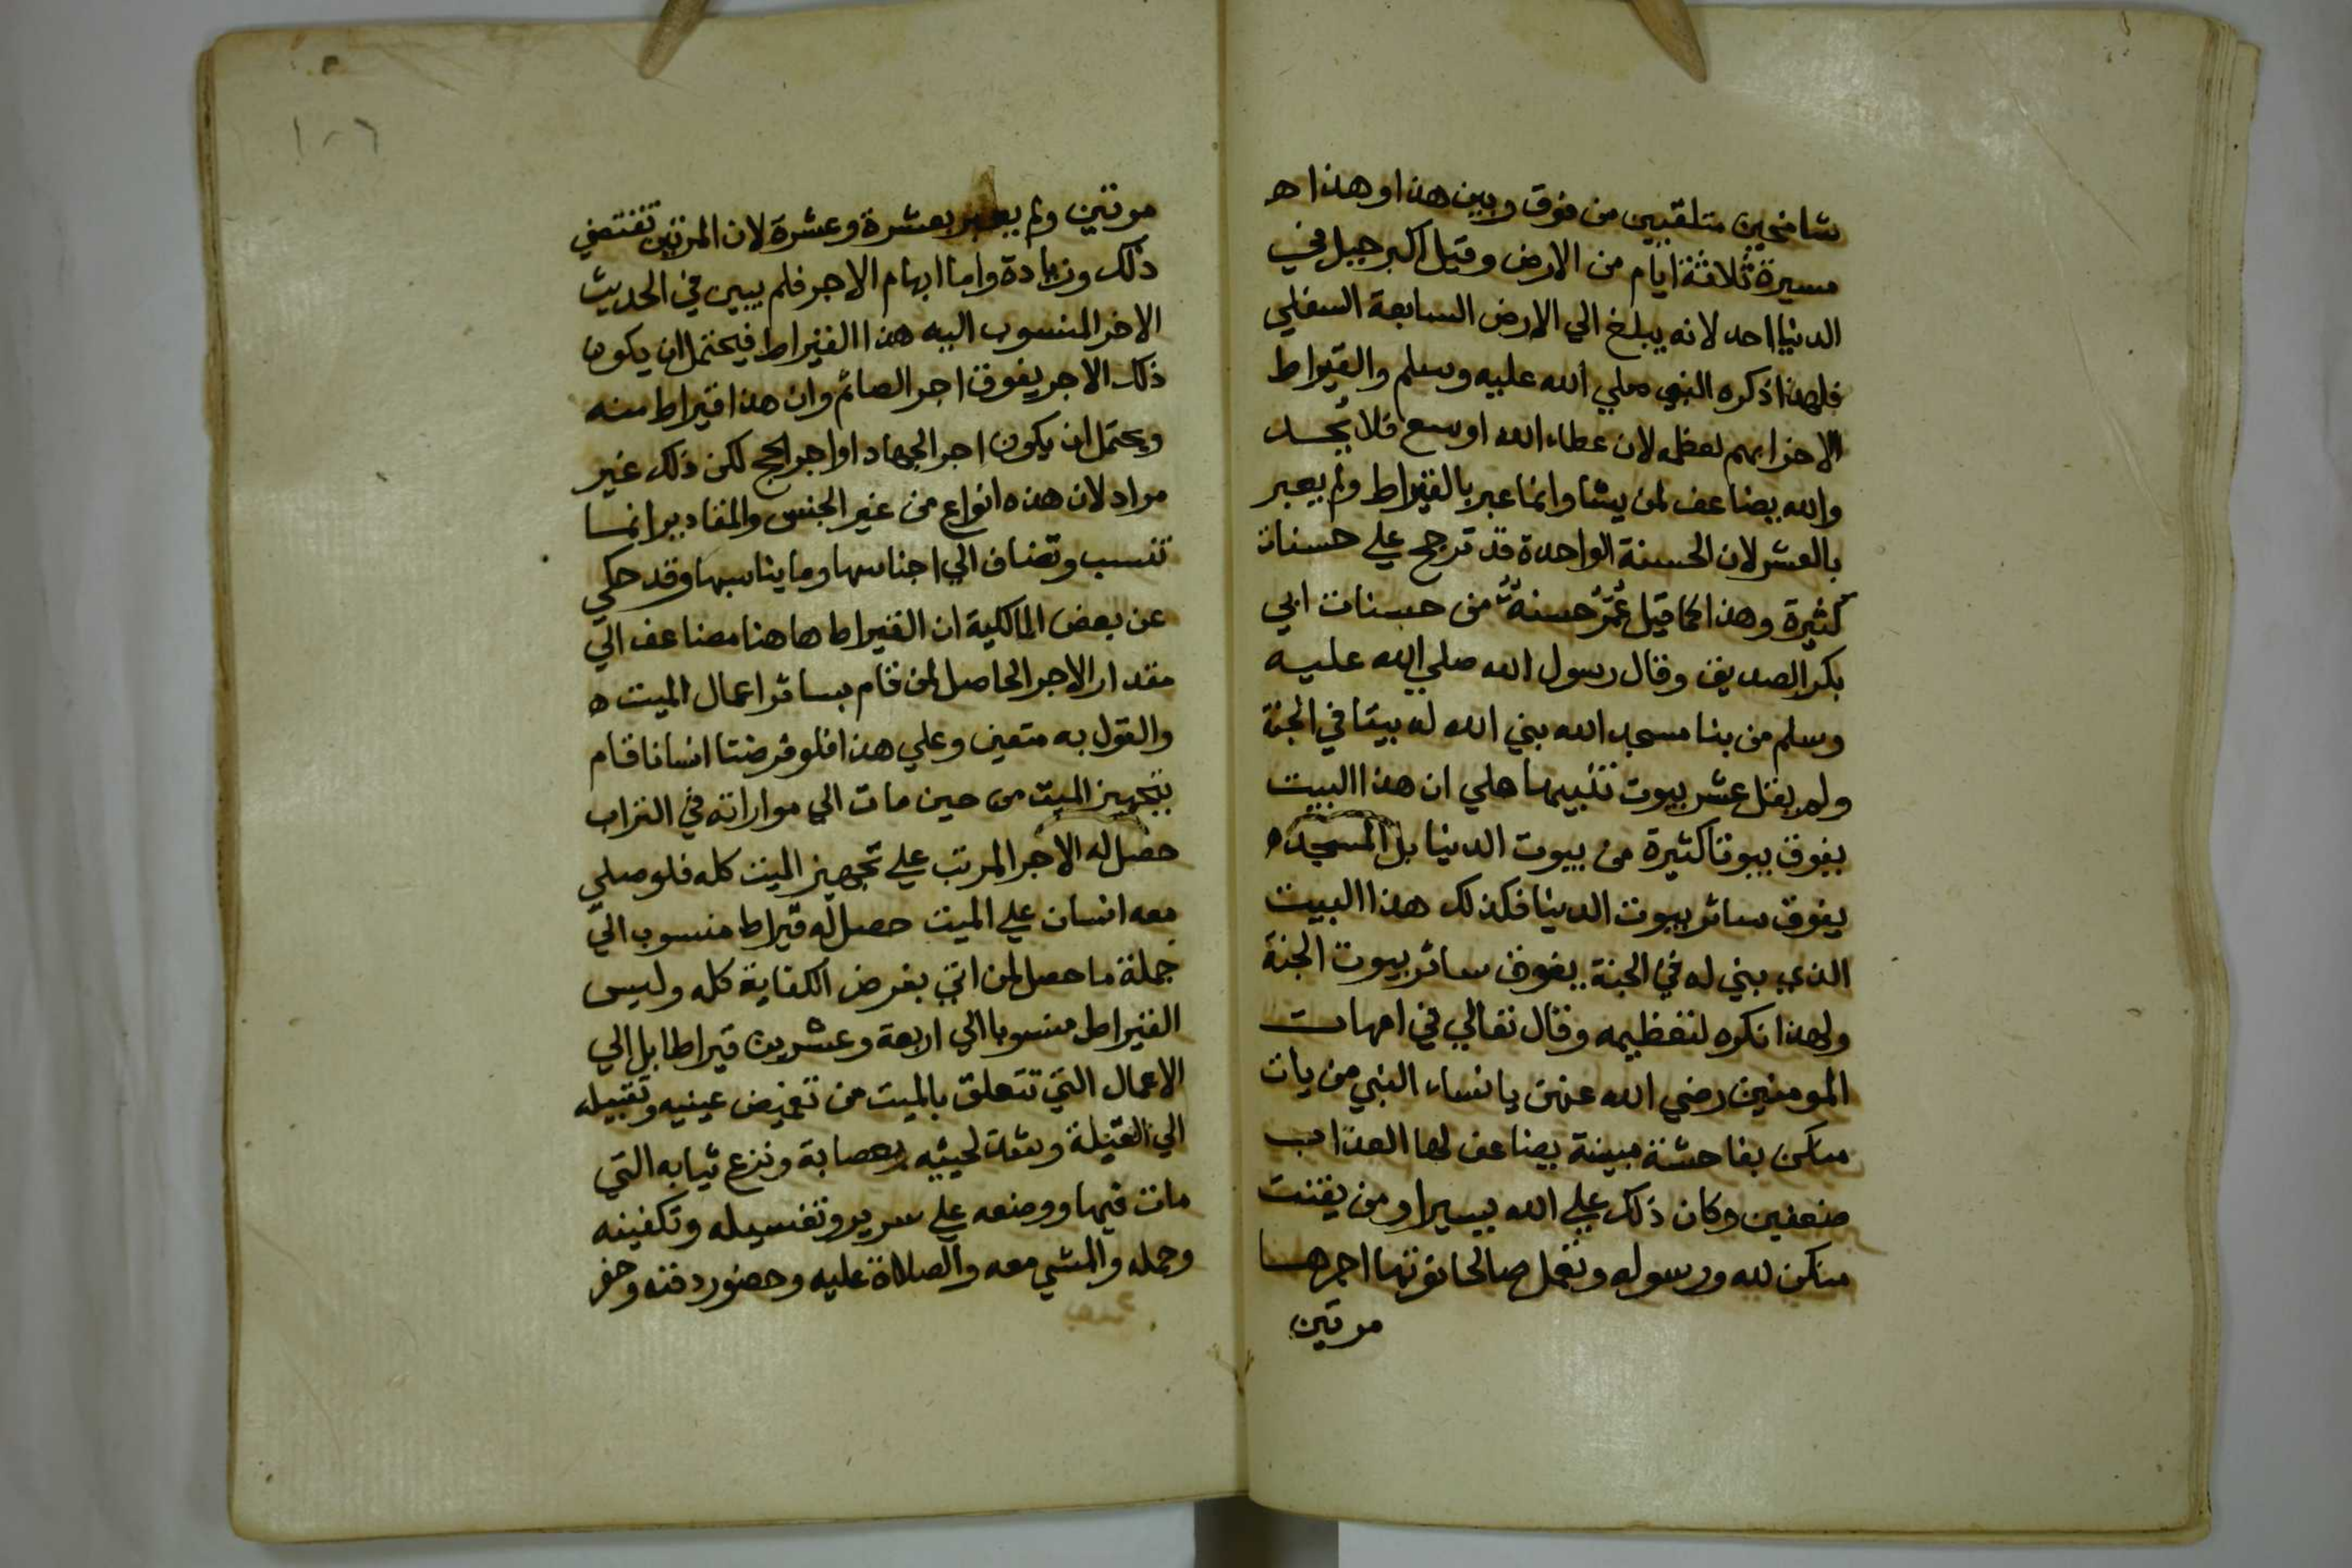 شامخين متلقيين من فوق وبين هذا وهذا ه
مسيرة ثلاثة ايام من الارض وقيل اكبر جبل في
الدنيا احد لانه يبلغ الي الارض السابعة السفلي
فلهذا ذكره النبي صلي الله عليه وسلم والقيراط
الاخر ابهم لعظمه لان عطاء الله اوسع فلا يحد
والله يضاعف لمن يشا وانما عبر بالقيراط ولم يعبر
بالعشر لان الحسنة الواحدة قد ترجح علي حسنات
كثيرة وهذا كما قيل عمر حسنة من حسنات ابي
بكر الصديق وقال رسول الله صلي الله عليه
وسلم من بنا مسجد الله بني الله له بيتا في الجنة
ولم يقل عشر بيوت تنبيها علي ان هذا البيت
يفوق بيوتا كثيرة من بيوت الدنيا بل المسجد ه
يفوق سائر بيوت الدنيا فكذلك هذا البيت
الذي بني له في الجنة يفوق سائر بيوت الجنة
ولهذا نكره لتعظيمه وقال تعالي في امهات
المومنين رضي الله عنهن يا نساء النبي من يات
منكن بفاحشة مبينة يضاعف لها العذاب
ضعفين وكان ذلك علي الله يسيرا ومن يقنت
منكن لله ورسوله وتعمل صالحا نؤتها اجرها
مرتين
١٠٦
مرتين ولم يعبر بعشرة وعشرة لان المرتين تقتضي
ذلك وزيادة واما ابهام الاجر فلم يبين في الحديث
الاخر المنسوب اليه هذا القيراط فيحتمل ان يكون
ذلك الاجر يفوق اجر الصائم وان هذا قيراط منه
ويحتمل ان يكون اجر الجهاد او اجر الحج لكن ذلك غير
مراد لان هذه انواع من غير الجنس والمقادير انما
تنسب وتضاف الي اجناسها وما يناسبها وقد حكي
عن بعض المالكية ان القيراط هاهنا مضاعف الي
مقدار الاجر الحاصل لمن قام بسائر اعمال الميت ه
والقول به متعين وعلي هذا فلو فرضنا انسانا قام
بتجهيز الميت من حين مات الي مواراته في التراب
حصل له الاجر المرتب علي تجهيز الميت كله فلو صلي
معه انسان علي الميت حصل له قيراط منسوب الي
جملة ما حصل لمن اتي بفرض الكفاية كله وليس
القيراط منسوبا الي اربعة وعشرين قيراطا بل الي
الاعمال التي تتعلق بالميت من تغميض عينيه وتقبيله
الي القبلة وشد لحييه بعصابة ونزع ثيابه التي
مات فيها ووضعه علي سرير وتغسيله وتكفينه
وحمله والمشي معه والصلاة عليه وحضور دفنه وحفر